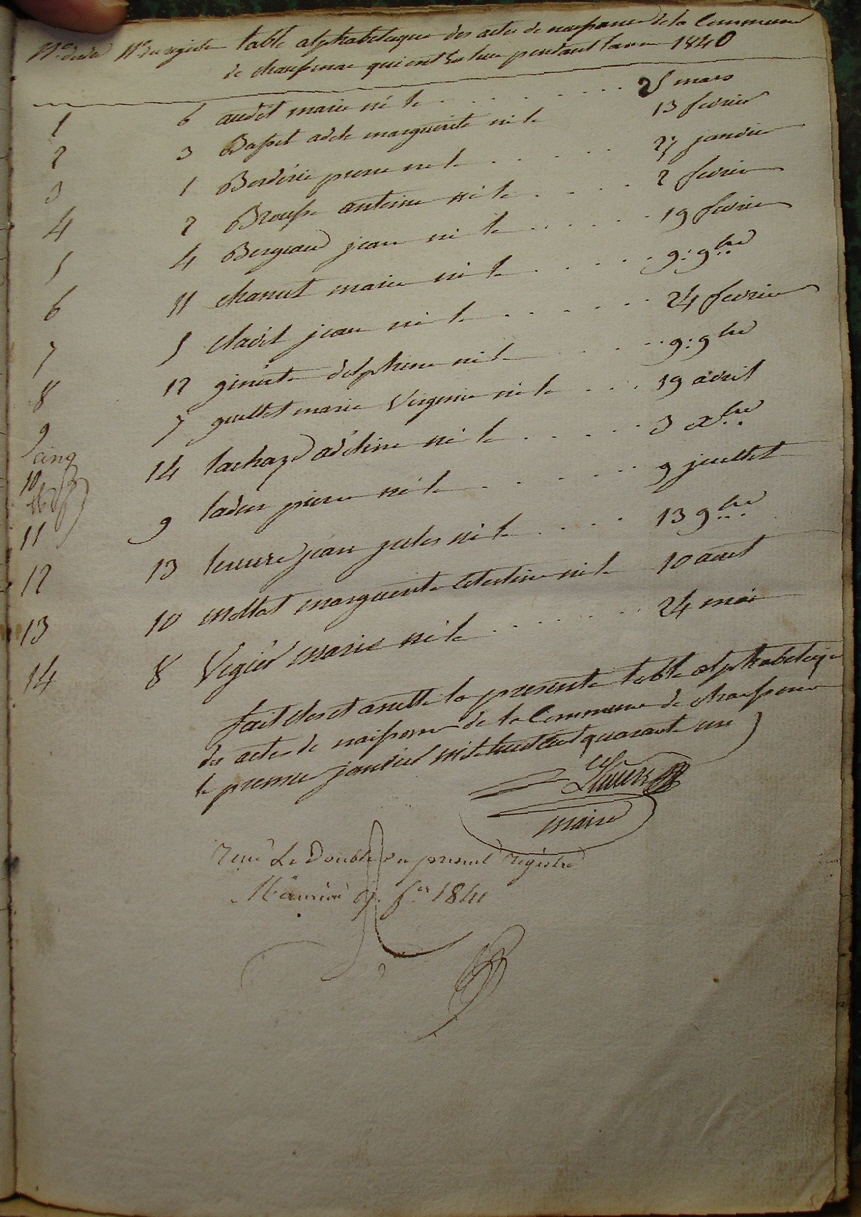 table alphabetique des actes de naissance de la Commune
de chaussenac qui ont eu lieu pendant l'an 1840
1 6 audet marie né le 25 mars
2 3 Basset adele marguerite né le 13 fevrier
3 1 Borderie pierre né le 27 janvier
4 2 Brousse antoine né le 2 fevrier
5 4 Bergeaud jean né le 19 fevrier
6 11 chanut marie né le 9: 9bre
7 5 jean né le 24 fevrier
8 12 delphine né le 9: 9bre
9 7 marie Virginie né le 19 avril
cinq
10 14 lachaze né le 3 xbre
11 9 pierre né le 9 juillet
12 13 jean jules né le 13 9bre
13 10 marguerite celestine né le 10 aout
14 8 Vigier marie né le 24 mai
fait clos et aretté la presente table alphabetique
des actes de naissance de la Commune de chaussenac
le premier janvier mil huit cent quarante un
maire
Le Double du present registre
Mauriac 1841